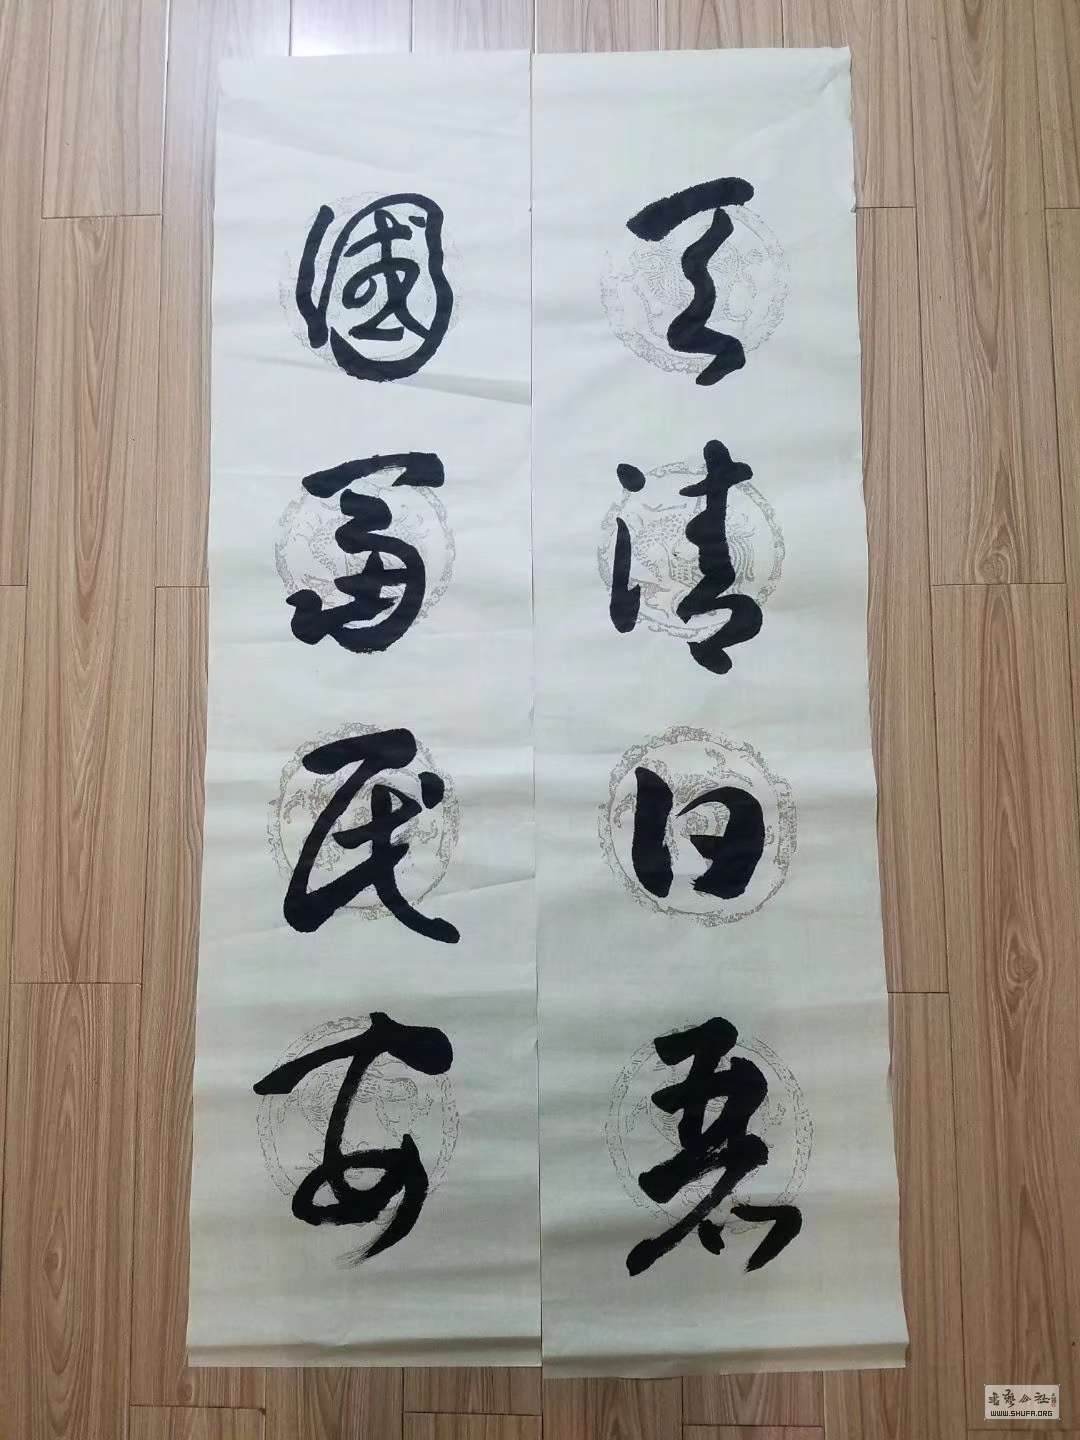 天清日麗
國富民安
書藝公社
WWW.SHUFA.ORG